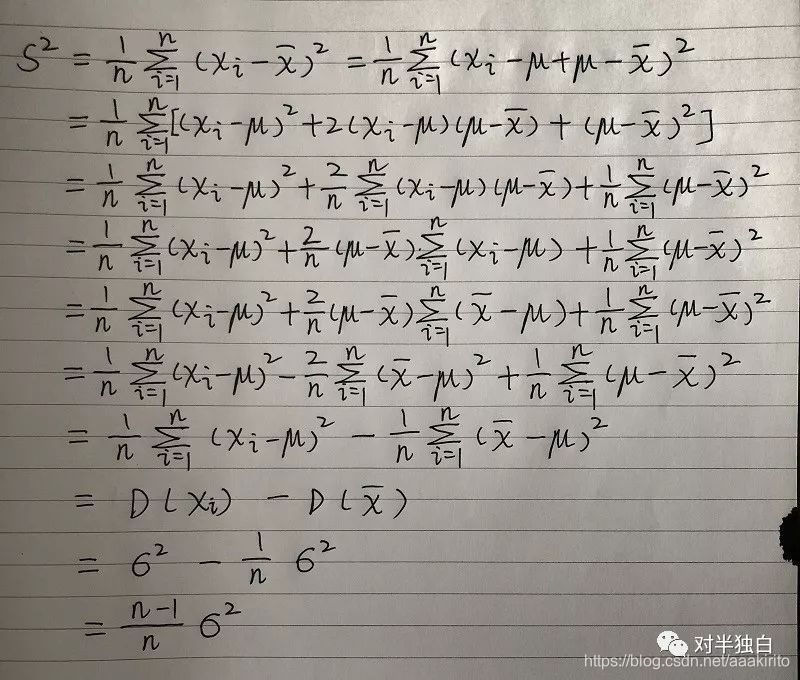 S² = 1/n ∑ⁿᵢ₌₁ (xᵢ - x̄)² = 1/n ∑ⁿᵢ₌₁ (xᵢ - μ + μ - x̄)²
= 1/n ∑ⁿᵢ₌₁ [(xᵢ - μ)² + 2(xᵢ - μ)(μ - x̄) + (μ - x̄)²]
= 1/n ∑ⁿᵢ₌₁ (xᵢ - μ)² + 2/n ∑ⁿᵢ₌₁ (xᵢ - μ)(μ - x̄) + 1/n ∑ⁿᵢ₌₁ (μ - x̄)²
= 1/n ∑ⁿᵢ₌₁ (xᵢ - μ)² + 2/n (μ - x̄) ∑ⁿᵢ₌₁ (xᵢ - μ) + 1/n ∑ⁿᵢ₌₁ (μ - x̄)²
= 1/n ∑ⁿᵢ₌₁ (xᵢ - μ)² + 2/n (μ - x̄) ∑ⁿᵢ₌₁ (x̄ - μ) + 1/n ∑ⁿᵢ₌₁ (μ - x̄)²
= 1/n ∑ⁿᵢ₌₁ (xᵢ - μ)² - 2/n ∑ⁿᵢ₌₁ (x̄ - μ)² + 1/n ∑ⁿᵢ₌₁ (μ - x̄)²
= 1/n ∑ⁿᵢ₌₁ (xᵢ - μ)² - 1/n ∑ⁿᵢ₌₁ (x̄ - μ)²
= D(xᵢ) - D(x̄)
= σ² - 1/n σ²
= (n-1)/n σ²
对半独白
https://blog.csdn.net/aaakirito